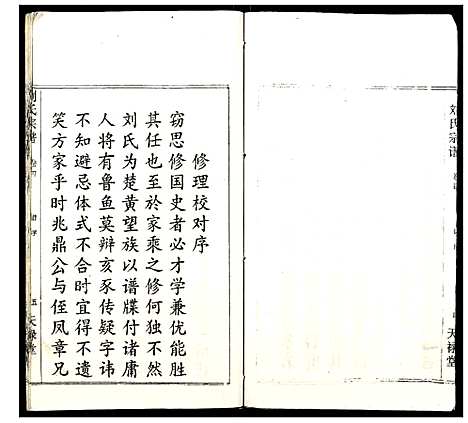 刘氏宗谱
天禄堂
修理校对序
窃思修国史者必才学兼优能胜
其任也至於家乘之修何独不然
刘氏为楚黄望族以谱牒付诸庸
人将有鲁鱼莫辨亥豕传疑字讳
不知避忌体式不合时宜得不遗
笑方家乎时兆鼎公与侄凤章兄
刘氏宗谱
五
天禄堂